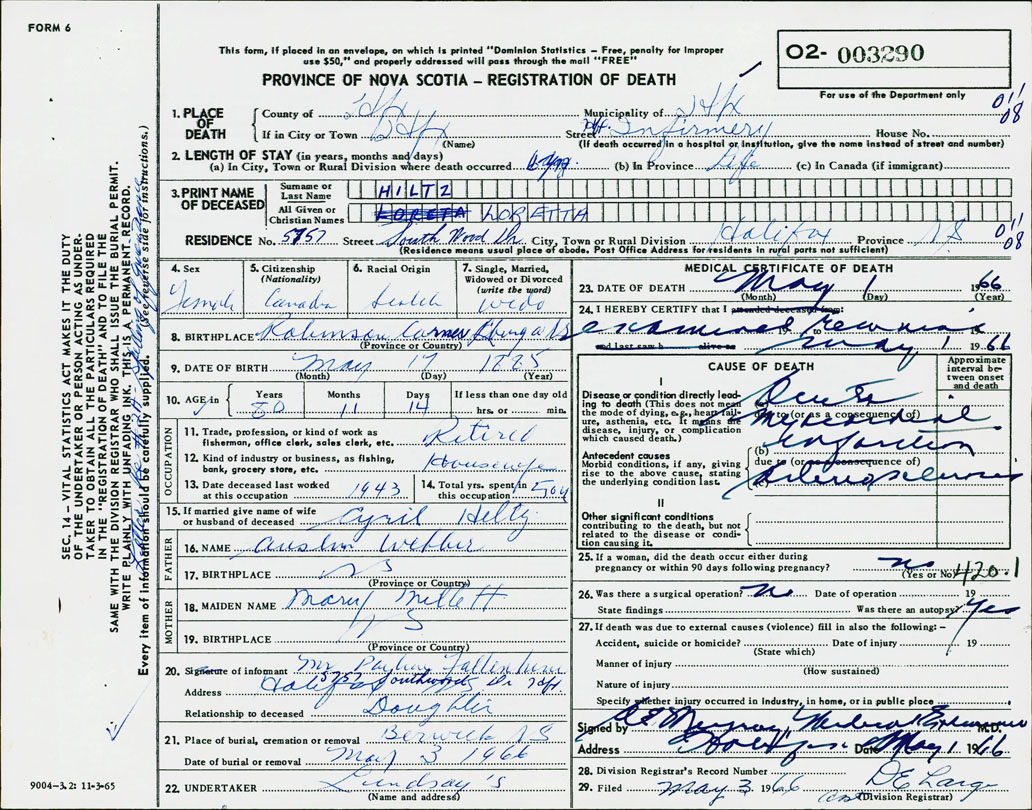 FORM 6
This form, if placed in an envelope, on which is printed "Dominion Statistics – Free, penalty for improper
use $50," and properly addressed will pass through the mail "FREE"
PROVINCE OF NOVA SCOTIA – REGISTRATION OF DEATH
O2- 003290
For use of the Department only
011
08
1. PLACE OF DEATH
County of Hfx Municipality of Hfx
If in City or Town Hfx Street Hfx. Infirmery House No.
(Name) (If death occurred in a hospital or institution, give the name instead of street and number)
2. LENGTH OF STAY (in years, months and days)
(a) In City, Town or Rural Division where death occurred (b) In Province Life (c) In Canada (if immigrant)
3. PRINT NAME OF DECEASED
Surname or Last Name HILTZ
All Given or Christian Names LORETA LORETTA
RESIDENCE No. 5757 Street South Wood Dr. City, Town or Rural Division Halifax Province NS
(Residence means usual place of abode. Post Office Address for residents in rural parts not sufficient)
011
08
4. Sex Female
5. Citizenship (Nationality) Canada
6. Racial Origin
7. Single, Married, Widowed or Divorced (write the word) Wido
8. BIRTHPLACE Robinson Corner NS
(Province or Country)
9. DATE OF BIRTH May 17 1885
(Month) (Day) (Year)
10. AGE in Years 80 Months 11 Days 14 If less than one day old hrs. or min.
OCCUPATION
11. Trade, profession, or kind of work as fisherman, office clerk, sales clerk, etc. Retired
12. Kind of industry or business, as fishing, bank, grocery store, etc. Housewife
13. Date deceased last worked at this occupation 1943
14. Total yrs. spent in this occupation
15. If married give name of wife or husband of deceased Cyril Hiltz
FATHER
16. NAME Webber
17. BIRTHPLACE NS
(Province or Country)
MOTHER
18. MAIDEN NAME Mary Millett
19. BIRTHPLACE NS
(Province or Country)
20. Signature of informant Mr
Address Halifax 5757 Southwood Dr Hfx.
Relationship to deceased Daughter
21. Place of burial, cremation or removal Berwick NS
Date of burial or removal May 3 1966
22. UNDERTAKER Lindsay's
(Name and address)
MEDICAL CERTIFICATE OF DEATH
23. DATE OF DEATH May 1 1966
(Month) (Day) (Year)
24. I HEREBY CERTIFY that I attended deceased from:
examined remains 19 to 19
and last saw h alive on May 1 1966
CAUSE OF DEATH
Approximate interval between onset and death
I
Disease or condition directly leading to death (This does not mean the mode of dying, e.g., heart failure, asthenia, etc. It means the disease, injury, or complication which caused death.)
(a) Acute
due to (or as a consequence of)
Myocardial
Infarction
Antecedent causes
Morbid conditions, if any, giving rise to the above cause, stating the underlying condition last.
(b)
due to (or as a consequence of)
(c) Arteriosclerosis
II
Other significant conditions contributing to the death, but not related to the disease or condition causing it.
25. If a woman, did the death occur either during pregnancy or within 90 days following pregnancy? no
(Yes or No) 420.1
26. Was there a surgical operation? no Date of operation 19
State findings Was there an autopsy? Yes
27. If death was due to external causes (violence) fill in also the following: –
Accident, suicide or homicide? Date of injury 19
(State which)
Manner of injury
(How sustained)
Nature of injury
Specify whether injury occurred in industry, in home, or in public place
Signed by Medical Examiner M.D.
Address Halifax Date May 1 1966
28. Division Registrar's Record Number
29. Filed May 3 1966
(Division Registrar)
SEC. 14 – VITAL STATISTICS ACT MAKES IT THE DUTY
OF THE UNDERTAKER OR PERSON ACTING AS UNDER-
TAKER TO OBTAIN ALL THE PARTICULARS REQUIRED
IN THE "REGISTRATION OF DEATH" AND TO FILE THE
SAME WITH THE DIVISION REGISTRAR WHO SHALL ISSUE THE BURIAL PERMIT.
WRITE PLAINLY WITH UNFADING INK. THIS IS A PERMANENT RECORD.
Every item of information should be carefully supplied. (See reverse side for instructions.)
9004–3.2: 11-3-65